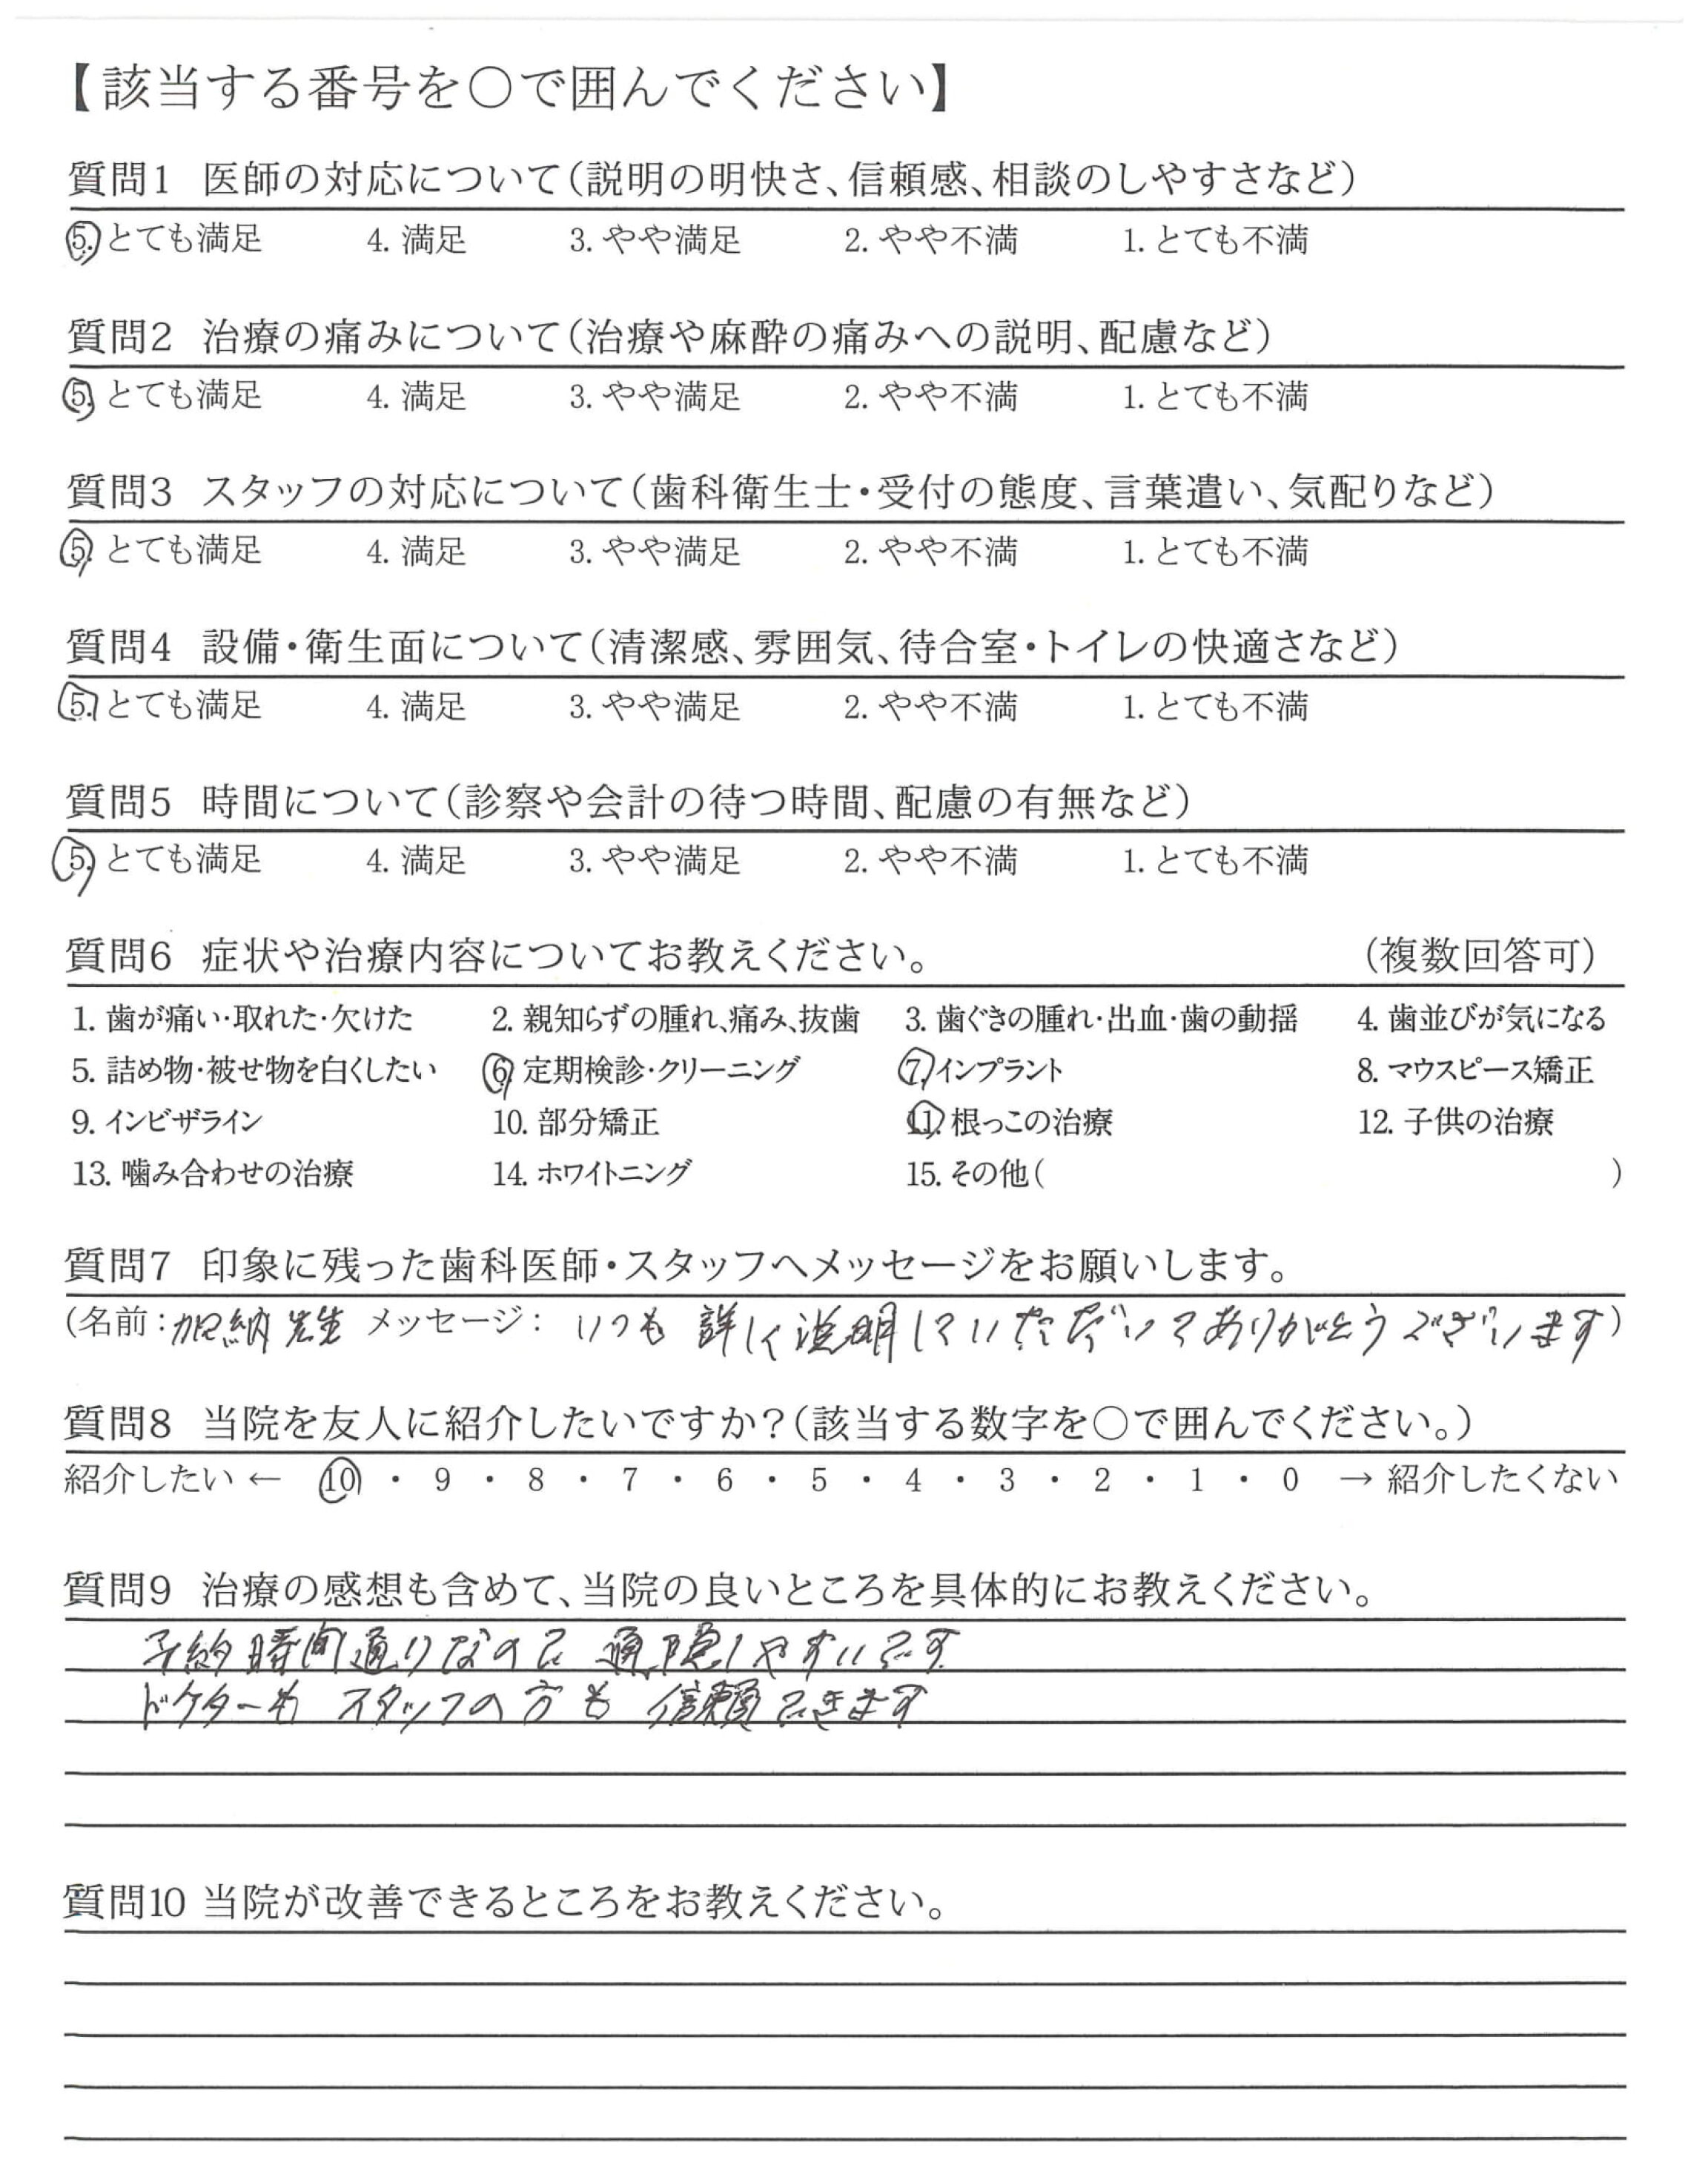 【該当する番号を〇で囲んでください】
質問1 医師の対応について(説明の明快さ、信頼感、相談のしやすさなど)
5. とても満足 4. 満足 3. やや満足 2. やや不満 1. とても不満
質問2 治療の痛みについて(治療や麻酔の痛みへの説明、配慮など)
5. とても満足 4. 満足 3. やや満足 2. やや不満 1. とても不満
質問3 スタッフの対応について(歯科衛生士・受付の態度、言葉遣い、気配りなど)
5. とても満足 4. 満足 3. やや満足 2. やや不満 1. とても不満
質問4 設備・衛生面について(清潔感、雰囲気、待合室・トイレの快適さなど)
5. とても満足 4. 満足 3. やや満足 2. やや不満 1. とても不満
質問5 時間について(診察や会計の待つ時間、配慮の有無など)
5. とても満足 4. 満足 3. やや満足 2. やや不満 1. とても不満
質問6 症状や治療内容についてお教えください。 (複数回答可)
1. 歯が痛い・取れた・欠けた 2. 親知らずの腫れ、痛み、抜歯 3. 歯ぐきの腫れ・出血・歯の動揺 4. 歯並びが気になる
5. 詰め物・被せ物を白くしたい 6. 定期検診・クリーニング 7. インプラント 8. マウスピース矯正
9. インビザライン 10. 部分矯正 11. 根っこの治療 12. 子供の治療
13. 噛み合わせの治療 14. ホワイトニング 15. その他( )
質問7 印象に残った歯科医師・スタッフへメッセージをお願いします。
(名前:加納先生 メッセージ: いつも 詳しく説明していただいてありがとうございます)
質問8 当院を友人に紹介したいですか?(該当する数字を〇で囲んでください。)
紹介したい ← 10 ・ 9 ・ 8 ・ 7 ・ 6 ・ 5 ・ 4 ・ 3 ・ 2 ・ 1 ・ 0 → 紹介したくない
質問9 治療の感想も含めて、当院の良いところを具体的にお教えください。
予約時間通りなので 通院しやすいです
ドクターも スタッフの方も 信頼できます
質問10 当院が改善できるところをお教えください。